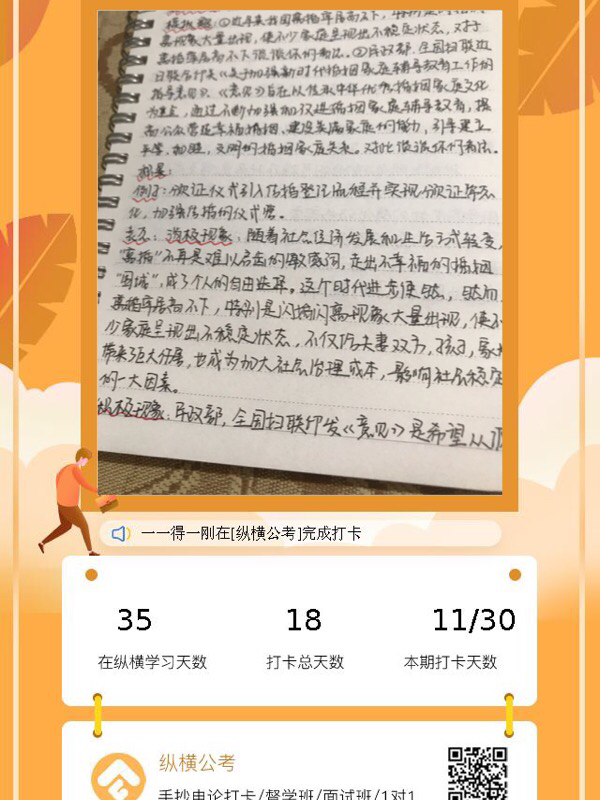 模拟题：①近年来我国离婚率居高不下，
离现象大量出现，使不少家庭呈现出不稳定状态，对于
离婚率居高不下谈谈你的看法。②民政部、全国妇联近
日联合印发《关于加强新时代婚姻家庭辅导教育工作的
指导意见》，《意见》旨在以传承中华优秀婚姻家庭文化
为主，通过不断加强和改进婚姻家庭辅导教育，提
高公众营造幸福婚姻、建设美满家庭的能力，引导建立
平等、和睦、文明的婚姻家庭关系。对此谈谈你的看法。
积累：
例子：颁证仪式引入结婚登记流程并实现颁证常态
化，加强结婚的仪式感。
表态：消极现象：随着社会经济发展和生活方式转变，
“离婚”不再是难以启齿的敏感词，走出不幸福的婚姻
“围城”，成了个人的自由选择。这个时代进步使然，然而，
离婚率居高不下，特别是闪婚闪离现象大量出现，使不
少家庭呈现出不稳定状态，不仅给夫妻双方，孩子，家
带来巨大伤害，也成为加大社会治理成本，影响社会稳定
的一大因素。
积极现象：民政部，全国妇联印发《意见》是希望从
一一得一刚在[纵横公考]完成打卡
35 18 11/30
在纵横学习天数 打卡总天数 本期打卡天数
纵横公考
手抄申论打卡/督学班/面试班/1对1